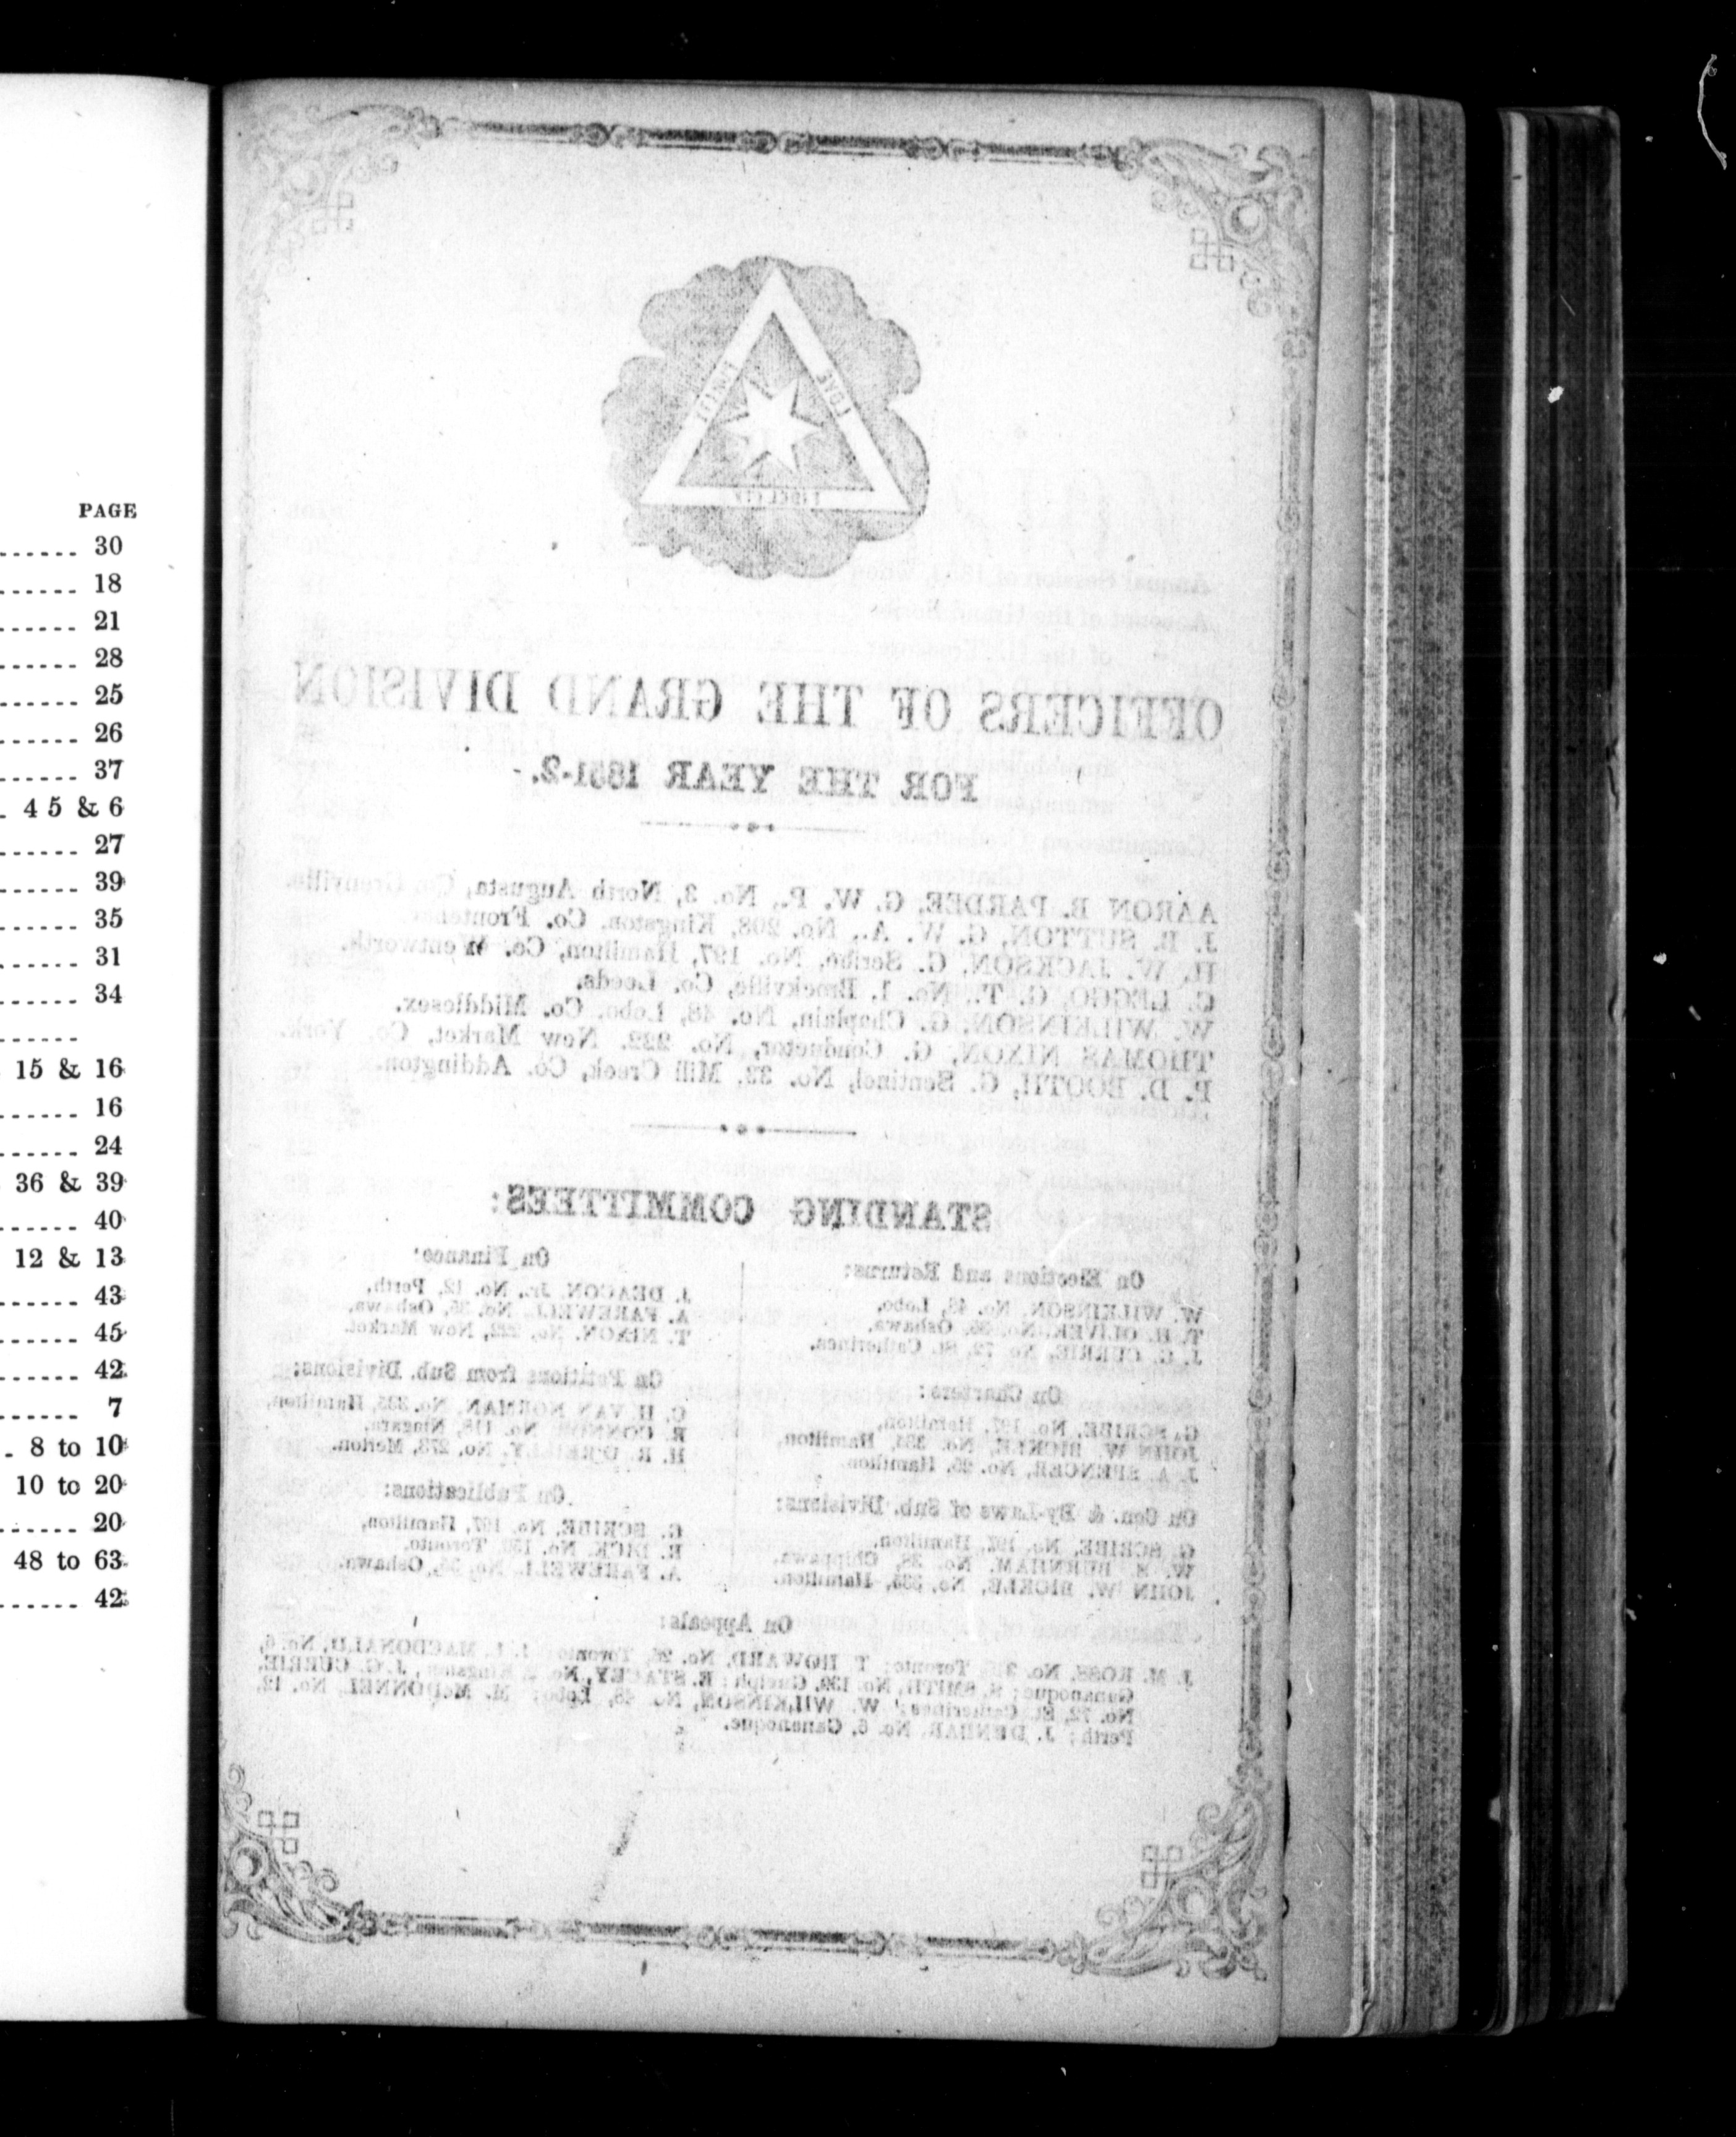 PAGE
30
18
21
28
25
26
37
4 5 & 6
27
39
35
31
34
15 & 16
16
24
36 & 39
40
12 & 13
43
45
42
7
8 to 10
10 to 20
20
48 to 63
42
LOVE
FIDELITY
OFFICERS OF THE GRAND DIVISION
FOR THE YEAR 1851-2.
AARON B. PARDEE, G. W. P., No. 3, North Augusta, Co. Grenville.
J. B. SUTTON, G. W. A., No. 208, Kingston, Co. Frontenac.
H. W. JACKSON, G. Scribe, No. 197, Hamilton, Co. Wentworth.
C. LEGGO, G. T., No. 1, Brockville, Co. Leeds.
W. WILKINSON, G. Chaplain, No. 48, Lobo, Co. Middlesex.
THOMAS NIXON, G. Conductor, No. 222, New Market, Co. York.
P. D. BOOTH, G. Sentinel, No. 32, Mill Creek, Co. Addington.
STANDING COMMITTEES:
On Elections and Returns:
W. WILKINSON, No. 48, Lobo,
T. H. OLIVER, No. 35, Oshawa,
J. G. CURRIE, No 72, St. Catherines.
On Charters:
G. SCRIBE, No. 197, Hamilton,
JOHN W. BICKLE, No. 335, Hamilton,
J. A. SPENCER, No. 25, Hamilton.
On Con. & By-Laws of Sub. Divisions:
G. SCRIBE, No. 197, Hamilton,
W. S. BURNHAM, No. 38, Chippawa,
JOHN W. BICKLE, No. 335, Hamilton.
On Finance:
J. DEACON, Jr., No. 12, Perth,
A. FAREWELL, No. 35, Oshawa,
T. NIXON, No. 222, New Market.
On Petitions from Sub. Divisions:
C. H. VAN NORMAN, No. 335, Hamilton,
R. CONNOR, No. 118, Niagara,
H. R. O'REILLY, No. 273, Merton.
On Publications:
G. SCRIBE, No. 197, Hamilton,
R. DICK, No. 150, Toronto,
A. FAREWELL, No. 35, Oshawa.
On Appeals:
J. M. ROSS, No. Toronto; T. HOWARD, No. 25, Toronto; MACDONALD, No. 6,
Gananoque; S. SMITH, No. 139, Guelph; R. STACEY, No. Kingston, J. G. CURRIE,
No. 72, St. Catherines; W. WILKINSON, No. 48, Lobo; M. McDONNEL, No. 12,
Perth; J. DENBAR, No. 6, Gananoque.